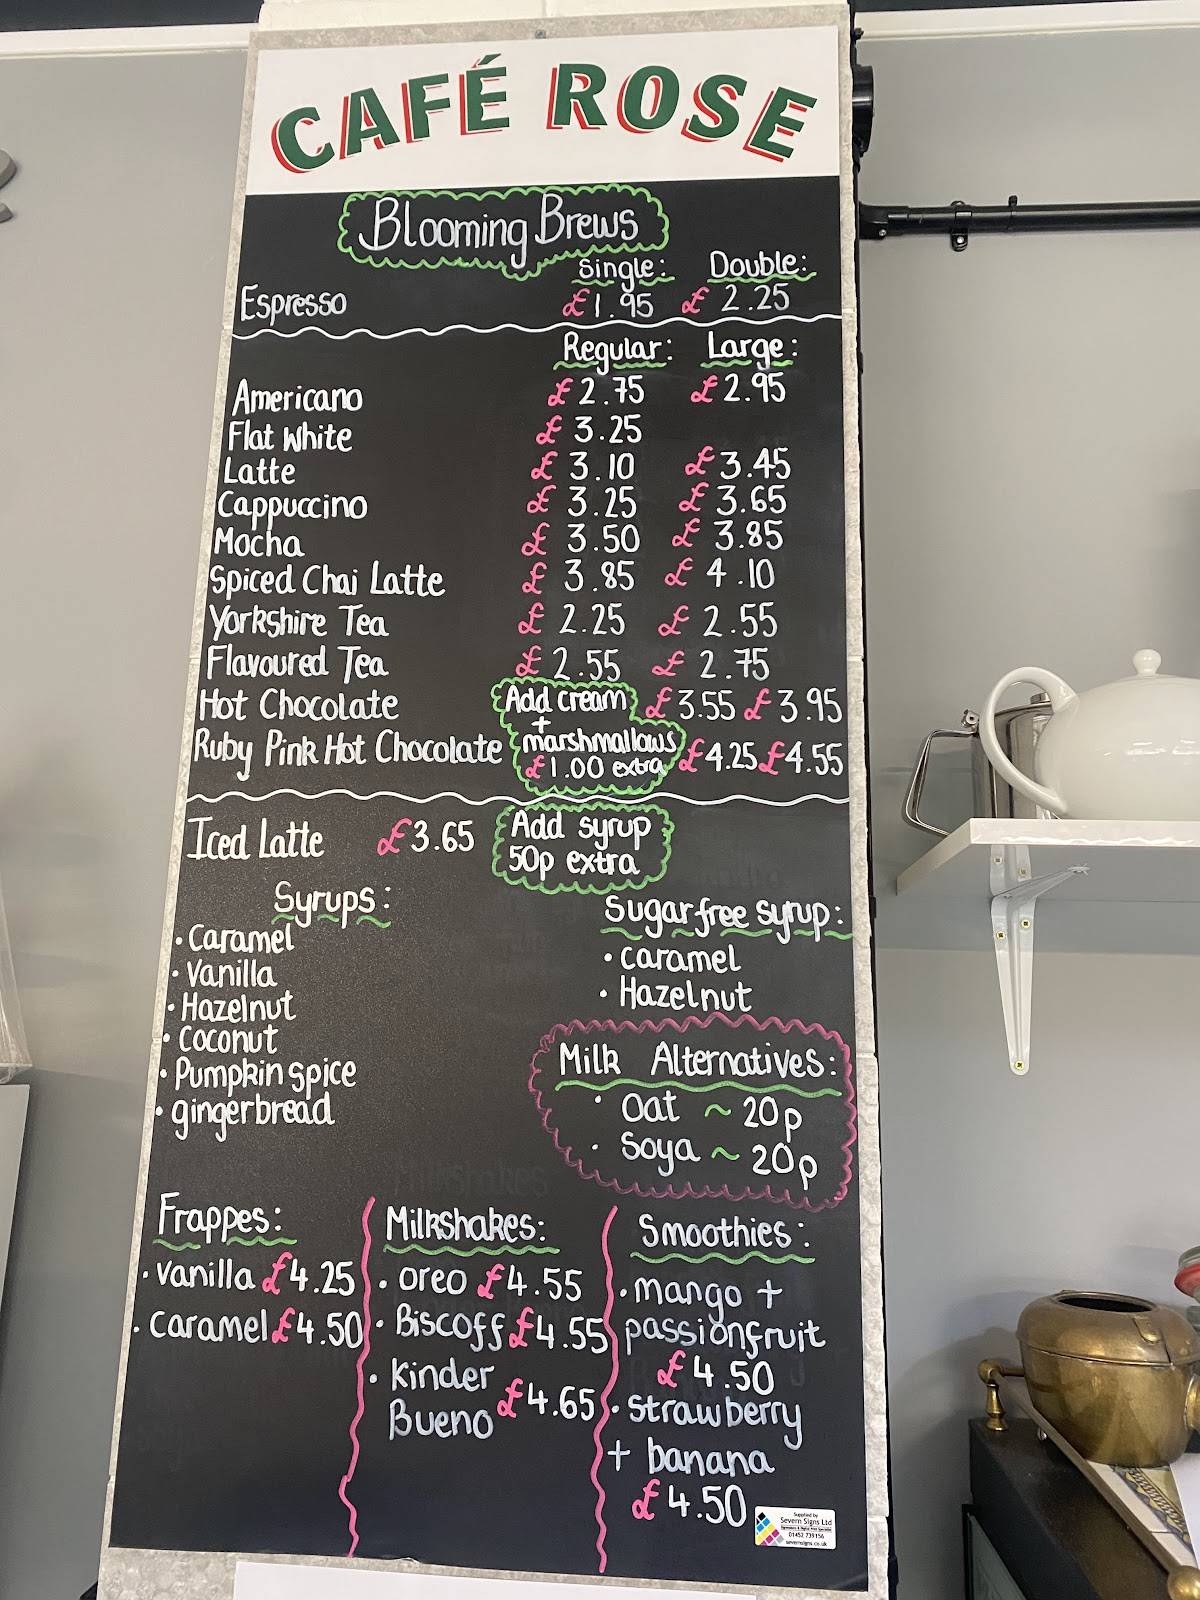 CAFÉ ROSE
Blooming Brews
Single: Double:
Espresso £1.95 £2.25
Regular: Large:
Americano £2.75 £2.95
Flat White £3.25
Latte £3.10 £3.45
Cappuccino £3.25 £3.65
Mocha £3.50 £3.85
Spiced Chai Latte £3.85 £4.10
Yorkshire Tea £2.25 £2.55
Flavoured Tea £2.55 £2.75
Hot Chocolate £3.55 £3.95
Ruby Pink Hot Chocolate £4.25 £4.55
Add cream
+
marshmallows
£1.00 extra
Iced Latte £3.65
Add syrup
50p extra
Syrups:
• Caramel
• Vanilla
• Hazelnut
• Coconut
• Pumpkin spice
• gingerbread
Sugar free syrup:
• Caramel
• Hazelnut
Milk Alternatives:
• Oat ~ 20p
• Soya ~ 20p
Frappes:
• Vanilla £4.25
• Caramel £4.50
Milkshakes:
• Oreo £4.55
• Biscoff £4.55
• Kinder
Bueno £4.65
Smoothies:
• mango +
passionfruit
£4.50
• Strawberry
+ banana
£4.50
Supplied by
Severn Signs Ltd
01452 739156
severnsigns.co.uk